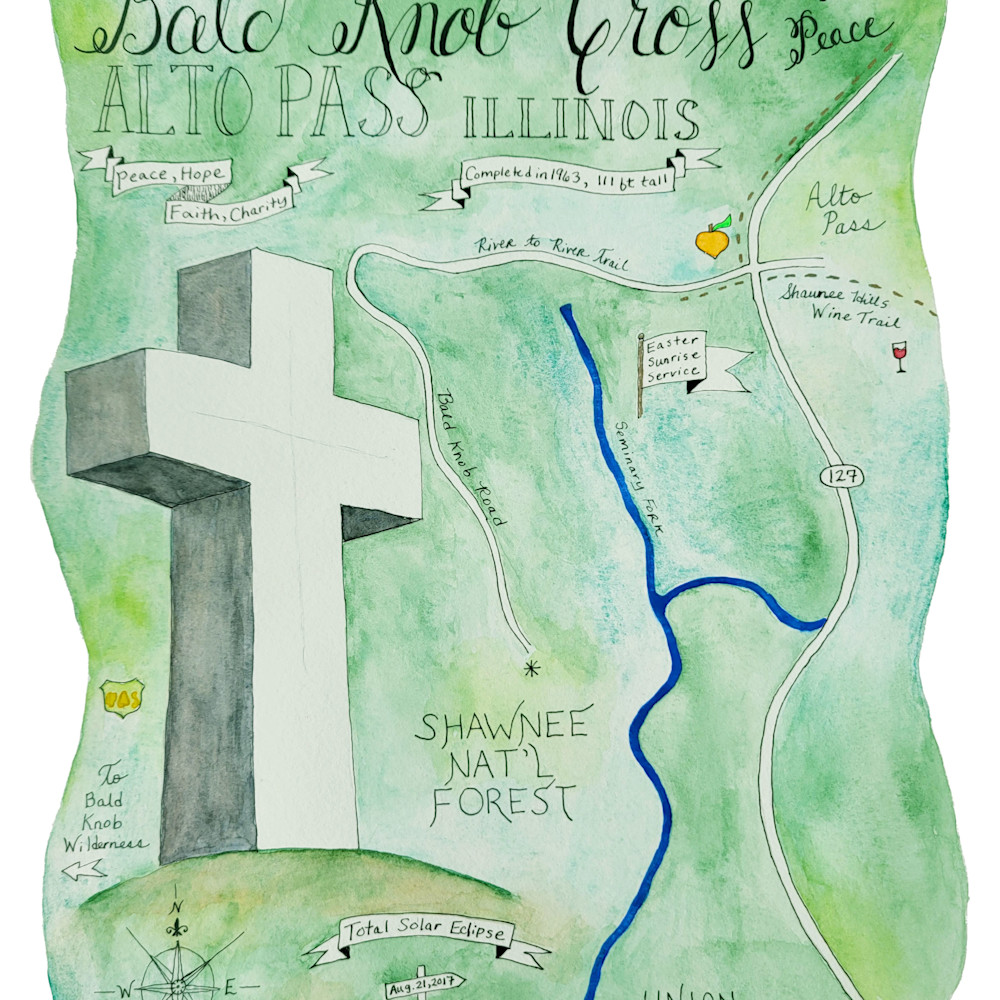 Bald Knob Cross
Peace
ALTO PASS ILLINOIS
Peace, Hope
Faith, Charity
Completed in 1963, 111 ft tall
Alto
Pass
River to River Trail
Shawnee Hills
Wine Trail
Easter
Sunrise
Service
Bald Knob Road
Seminary Fork
127
SHAWNEE
NAT'L
FOREST
To
Bald
Knob
Wilderness
N
W E
Total Solar Eclipse
Aug. 21, 2017
UNION